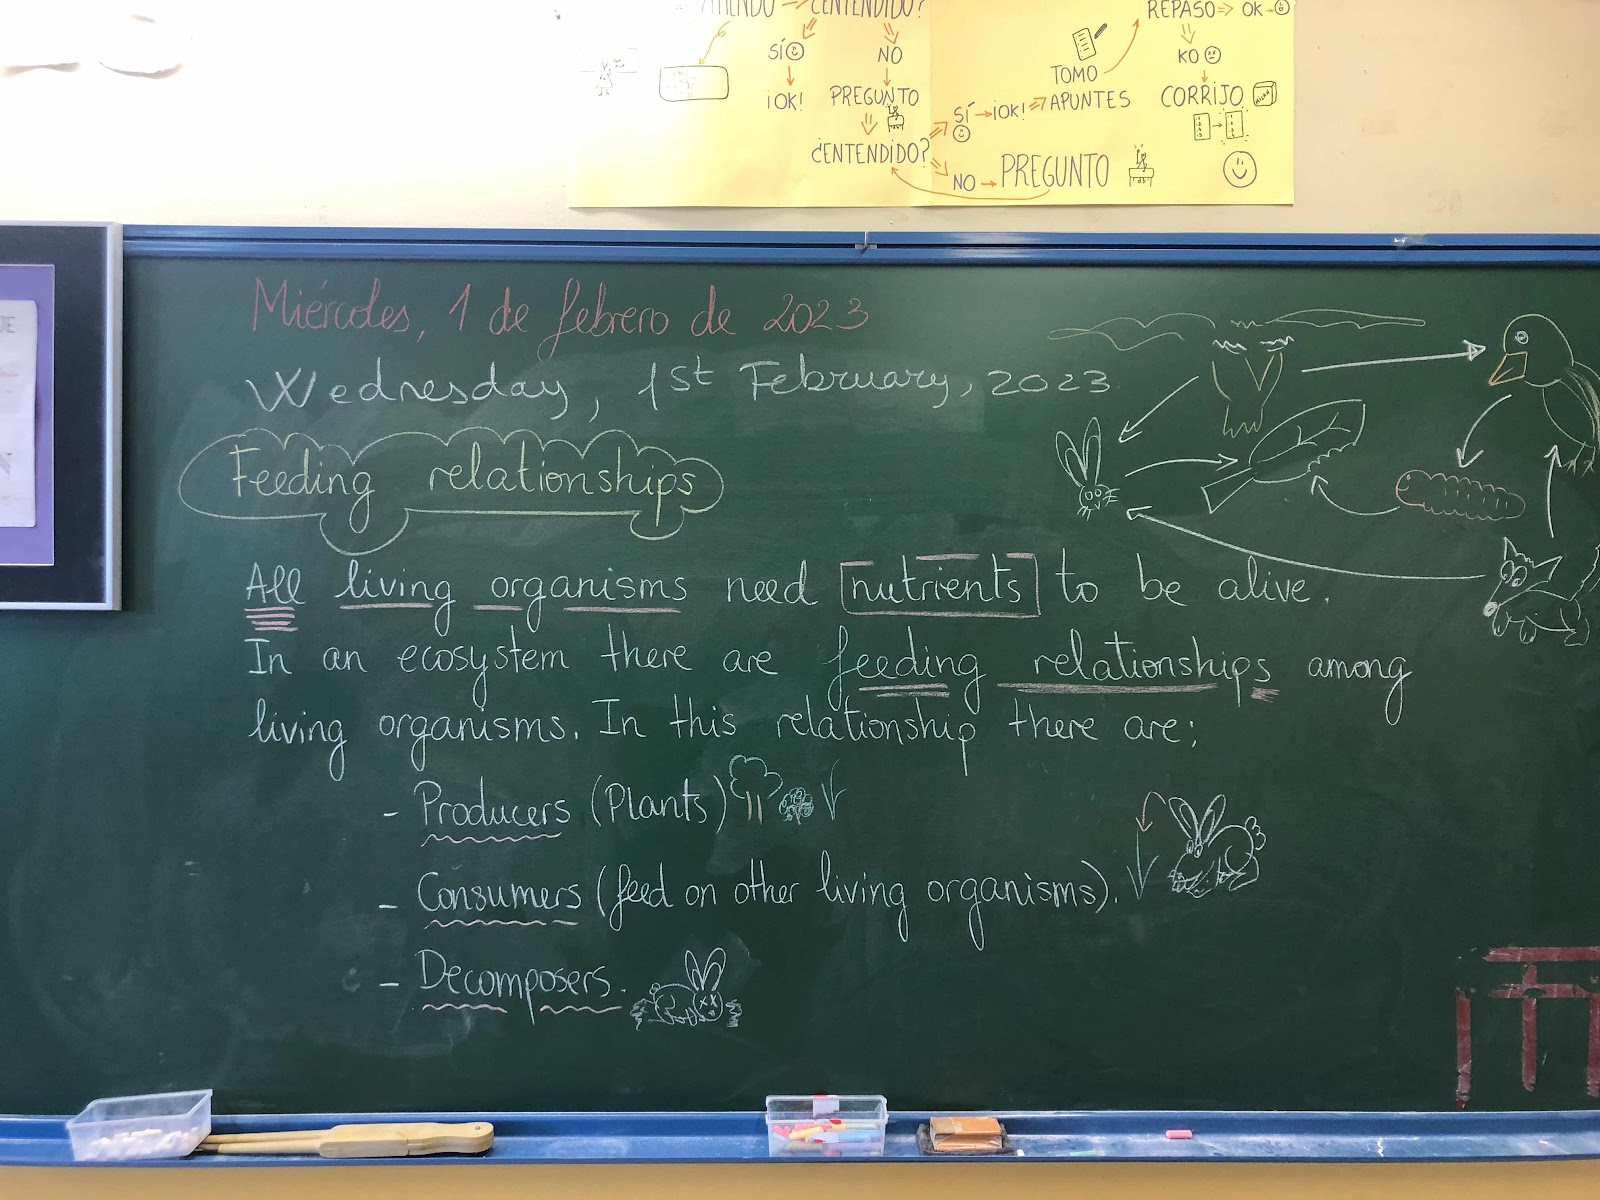 ¿ENTENDIDO?
SÍ NO
¡OK! PREGUNTO
¿ENTENDIDO?
SÍ → ¡OK! ⇒ TOMO APUNTES
NO → PREGUNTO
REPASO ⇒ OK →
KO
CORRIJO
Miércoles, 1 de febrero de 2023
Wednesday, 1st February, 2023
Feeding relationships
All living organisms need nutrients to be alive.
In an ecosystem there are feeding relationships among
living organisms. In this relationship there are:
- Producers (Plants)
- Consumers (feed on other living organisms).
- Decomposers.